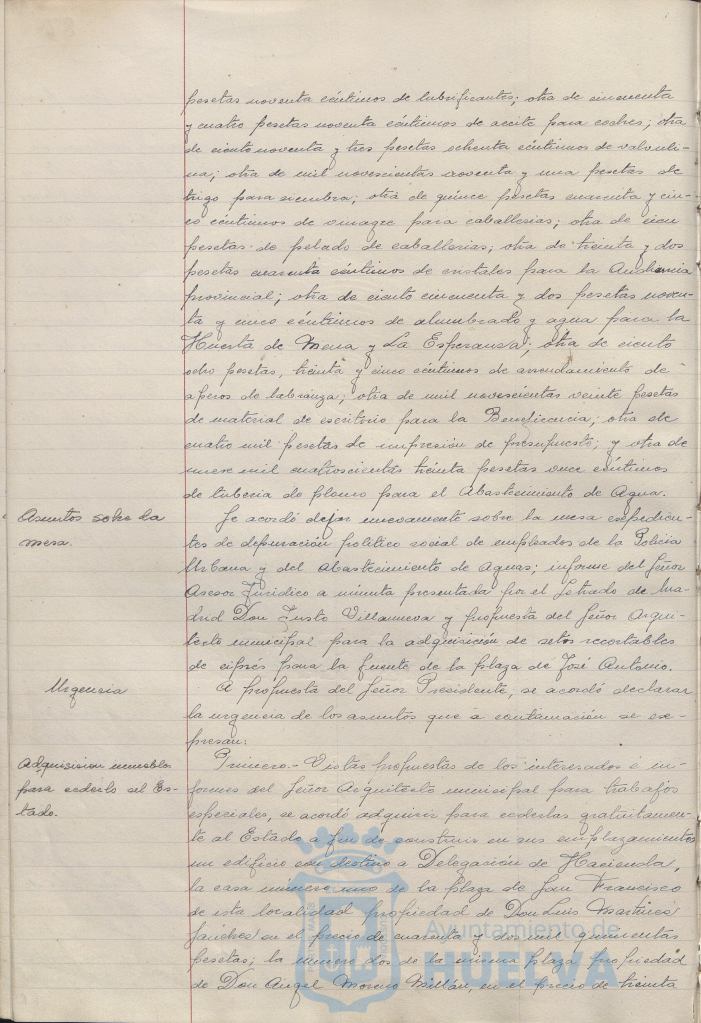 pesetas noventa céntimos de lubrificantes; otra de cincuenta
y cuatro pesetas noventa céntimos de aceite para coches; otra
de ciento noventa y tres pesetas ochenta céntimos de valvuli-
na; otra de mil novescientas noventa y una pesetas de
trigo para siembra; otra de quince pesetas cuarenta y cin-
co céntimos de vinagre para caballerias; otra de cien
pesetas de pelado de caballerias; otra de treinta y dos
pesetas cuarenta céntimos de cristales para la Audiencia
provincial; otra de ciento cincuenta y dos pesetas noven-
ta y cinco céntimos de alumbrado y agua para la
Huerta de Mena y La Esperanza; otra de ciento
ocho pesetas, treinta y cinco céntimos de arrendamiento de
aperos de labranza; otra de mil novescientas veinte pesetas
de material de escritorio para la Beneficencia; otra de
cuatro mil pesetas de impresión de presupuesto; y otra de
nueve mil cuatroscientas treinta pesetas once céntimos
de tuberia de plomo para el Abastecimiento de Agua.
Asuntos sobre la
mesa.
Se acordó dejar nuevamente sobre la mesa expedien-
tes de depuración politico social de empleados de la Policia
Urbana y del Abastecimiento de Aguas; informe del Señor
Asesor Juridico a minuta presentada por el Letrado de Ma-
drid Don Justo Villanueva y propuesta del Señor Arqui-
tecto municipal para la adquisición de setos recortables
de ciprés para la fuente de la plaza de José Antonio.
Urgencia
A propuesta del Señor Presidente, se acordó declarar
la urgencia de los asuntos que a contamación se ex-
presan:
Adquisición inmuebles
para cederlo al Es-
tado.
Primero.- Vistas propuestas de los interesados é in-
formes del Señor Arquitecto municipal para trabajos
especiales, se acordó adquirir para cederlas gratuitamen-
te al Estado a fin de construir en sus emplazamientos
un edificio con destino a Delegación de Hacienda,
la casa número uno de la plaza de San Francisco
de esta localidad propiedad de Don Luis Martinez
Sanchez en el precio de cuarenta y dos mil quinientas
pesetas; la número dos de la misma plaza propiedad
de Don Angel Moreno Millán, en el precio de treinta
Ayuntamiento de
HUELVA